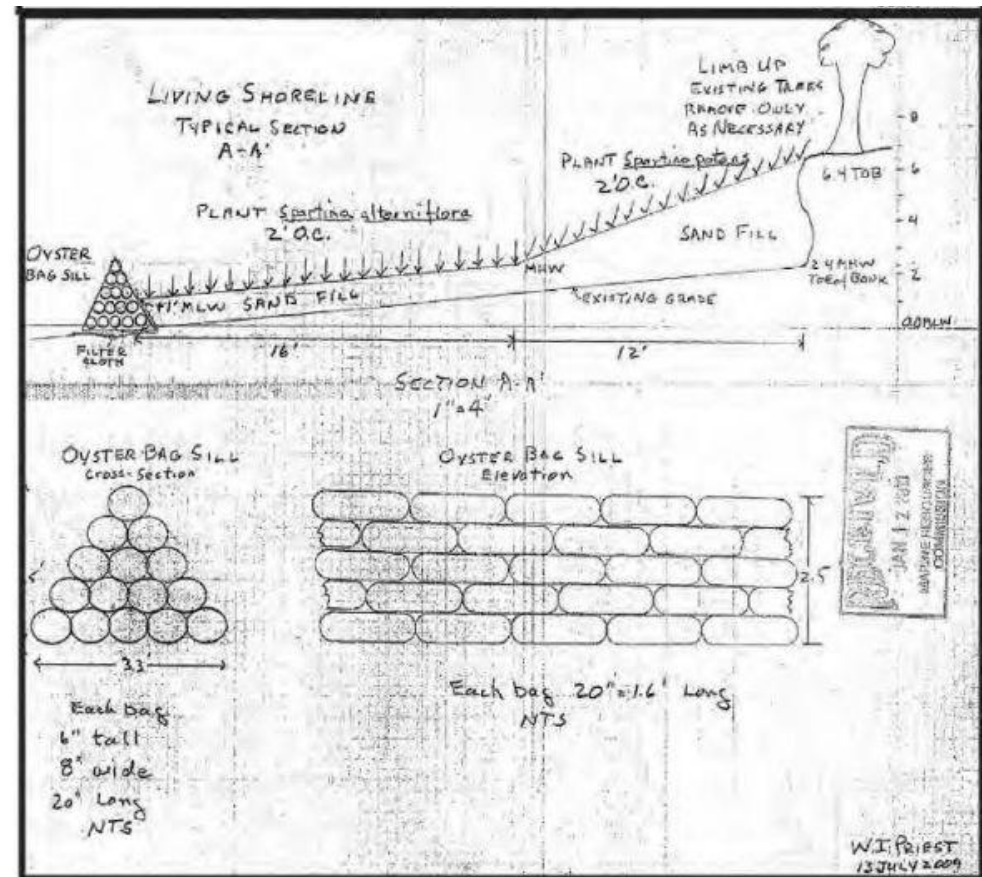 LIVING SHORELINE
TYPICAL SECTION
A-A'
LIMB UP
EXISTING TREES
REMOVE ONLY
AS NECESSARY
PLANT Spartina patens
2' O.C.
PLANT Spartina alterniflora
2' O.C.
OYSTER
BAG SILL
+1' MLW SAND FILL
MHW
SAND FILL
EXISTING GRADE
6.4 TOB
2.4 MHW
TOE of BANK
8
6
4
2
0.0 MLW
FILTER
CLOTH
16'
12'
SECTION A-A'
1"=4'
OYSTER BAG SILL
Cross-Section
3.3'
Each bag
6" tall
8" wide
20" Long
NTS
OYSTER BAG SILL
Elevation
2.5
Each bag 20"=1.6' Long
NTS
RECEIVED
JAN 12
MARINE RESOURCES
COMMISSION
W.I. PRIEST
13 JULY 2009